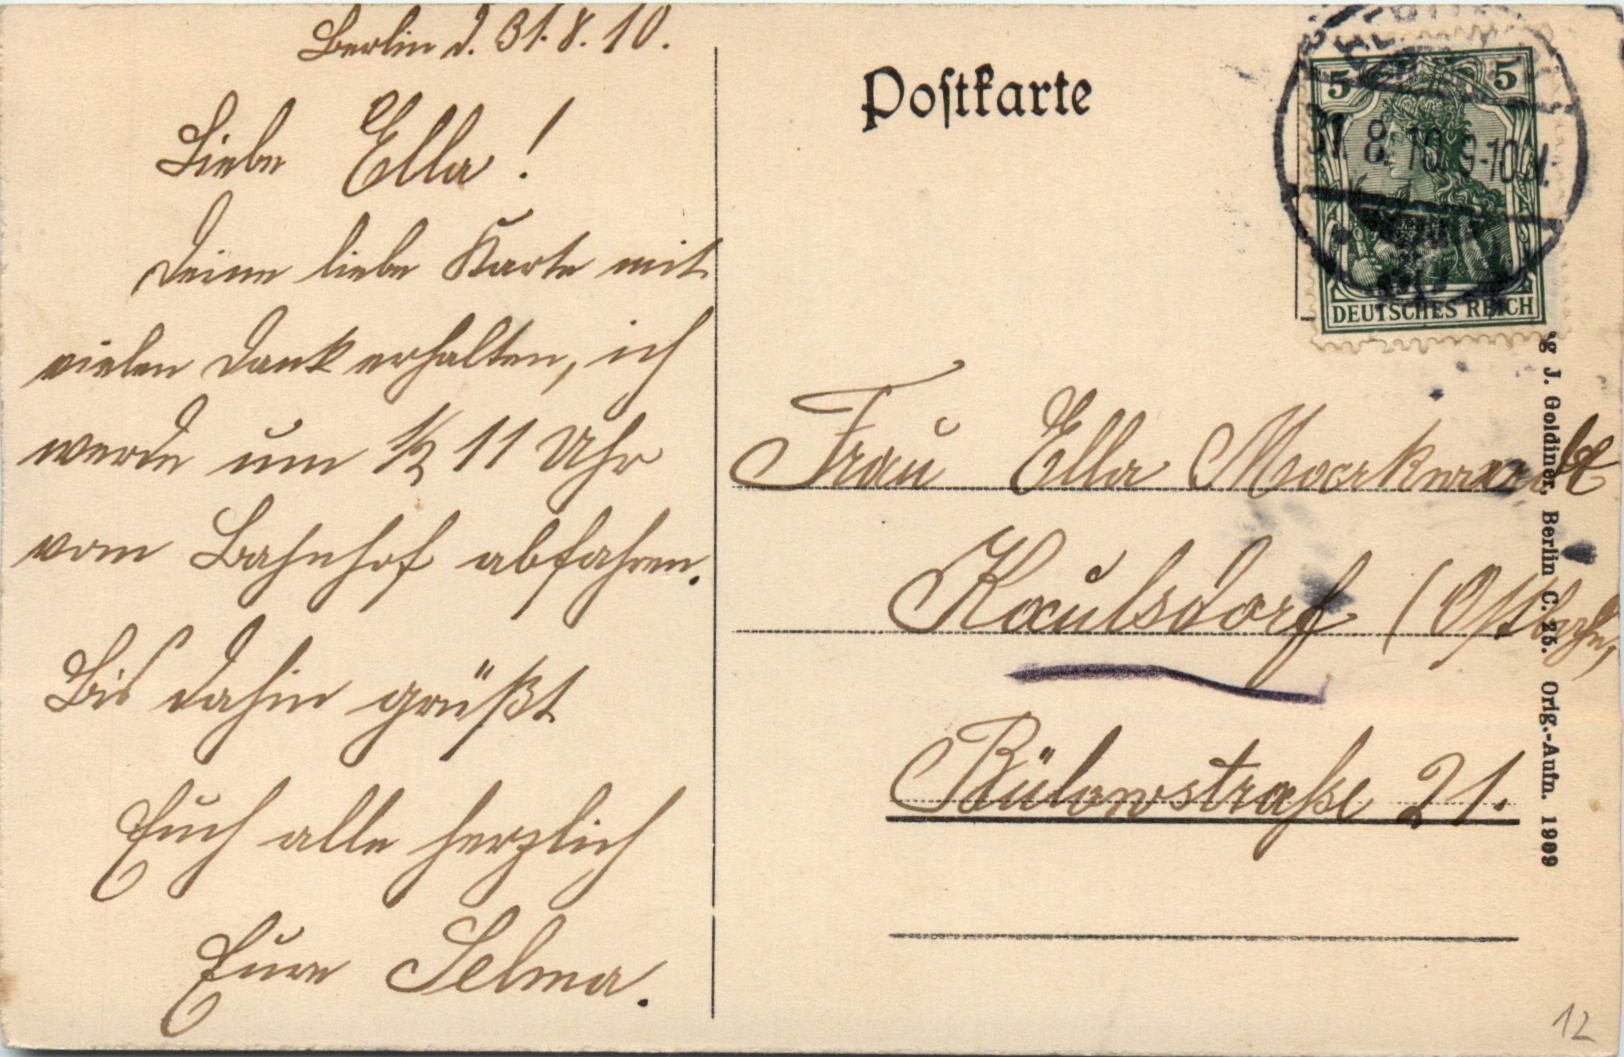 Berlin d. 31.8.10.
Liebe Ella!
Deine liebe Karte mit
vielen Dank erhalten, ich
werde um 1/2 11 Uhr
vom Bahnhof abfahren.
Bis dahin grüßt
Euch alle herzlich
Eure Selma.
Postkarte
5 5
31. 8. 10. 9-10 N.
DEUTSCHES REICH
Frau Ella Markwardt
Kaulsdorf (Ostbahn)
Bülowstraße 21.
J. Goldiner, Berlin C. 25. Orig.-Aufn. 1909
12